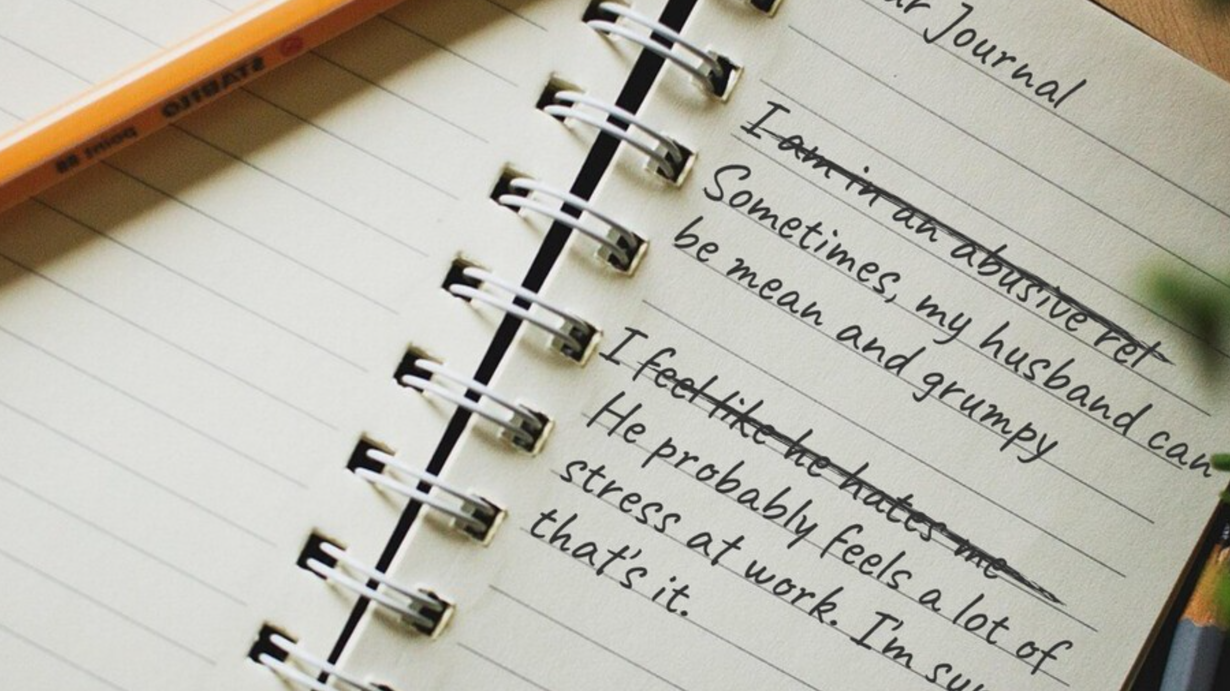 ar Journal
I am in an abusive rel
Sometimes, my husband can
be mean and grumpy
I feel like he hates me
He probably feels a lot of
stress at work. I'm su
that's it.